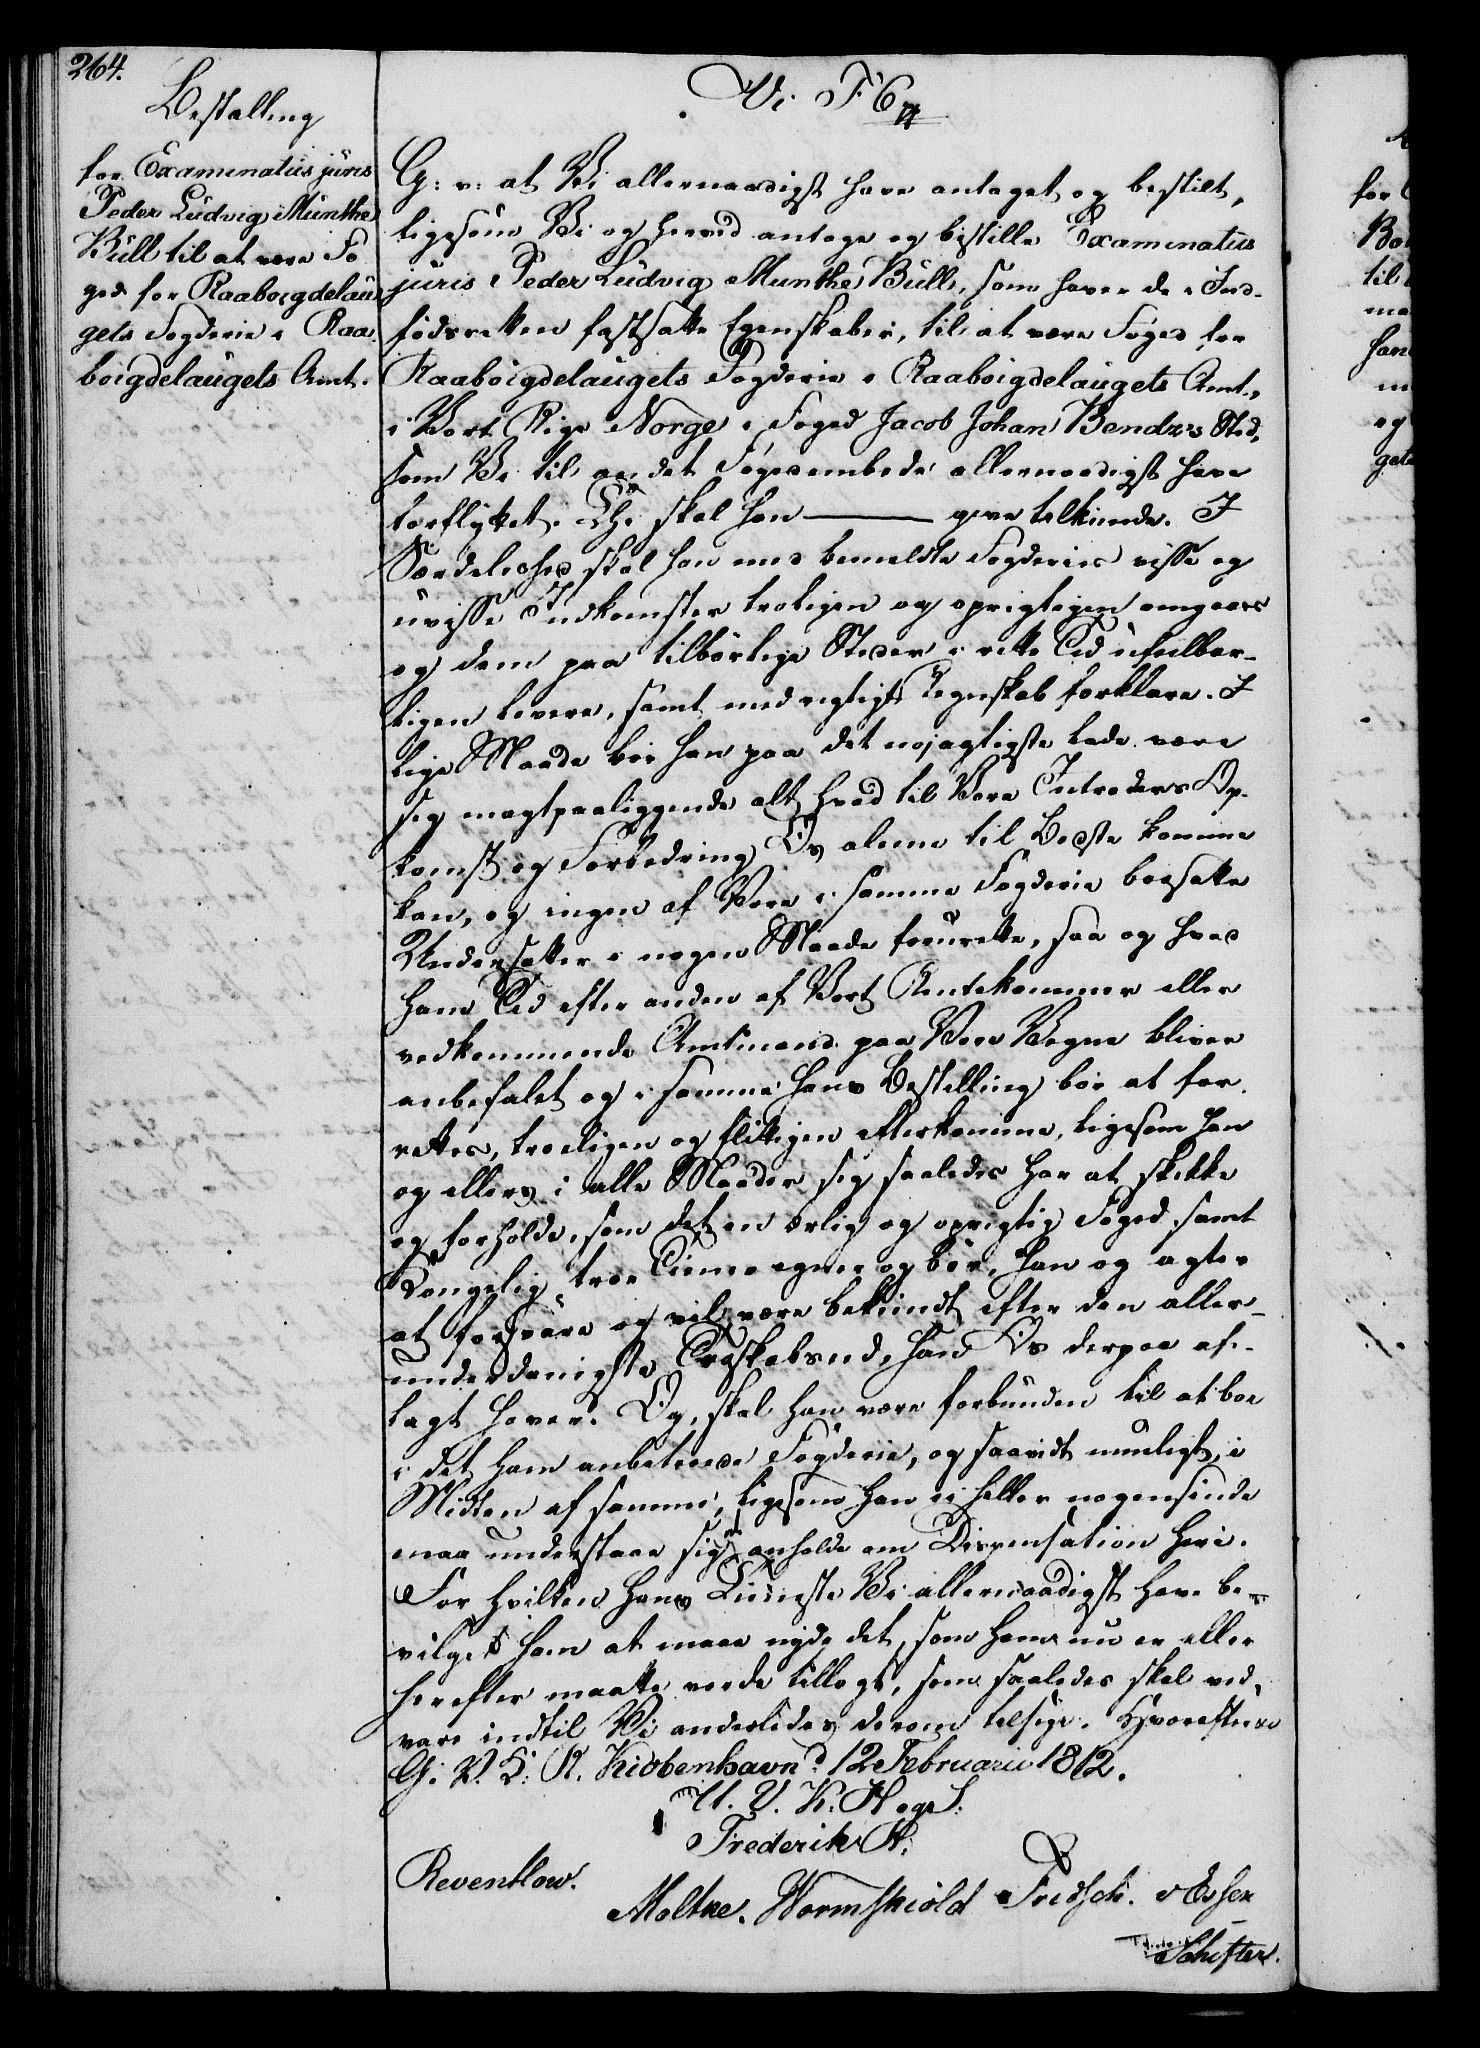 264.
Bestalling
for Examinatus juris
Peder Ludvig Munthe
Bull til at være Fo
ged for Raaboigdelau
gets Fogderie i Raa
boigdelaugets Amt.
Vi F 6
G: v: at Vi allernaadigst have antaget og bestilt,
ligesom Vi og herved antage og bestille Examinatus
juris Peder Ludvig Munthe Bull, som haver de i Ind-
fødsretten fastsatte Egenskaber, til at være Foged for
Raaboigdelaugets Fogderie i Raaboigdelaugets Amt,
i Vort Rige Norge i Foged Jacob Johan Bendzs Sted,
som Vi til andet Fogedembede allernaadigst have
forflyttet. Thi skal han ——— give tilkiende. I
Særdeleshed skal han med bemeldte Fogderies visse og
uvisse Indkomster troligen og oprigtigen omgaaes
og dem paa tilbørlige Steder i rette Tid ufeilbar-
ligen levere, samt med rigtigt Regnskab forklare. I
lige Maade bør han paa det nøjagtigste lade være
sig magtpaaliggende alt hvad til Vore Intraders Op-
komst og Forbedring Os alene til Bedste komme
kan, og ingen af Vore i samme Fogderie boesatte
Undersatter i nogen Maade forurette, saa og hvad
ham Tid efter anden af Vort Rentekammer eller
vedkommende Amtmand paa Vore Vegne bliver
anbefalet og i samme hans Bestilling bør at for-
rettes, troeligen og flittigen efterkomme, ligesom han
og ellers i alle Maader sig saaledes har at skikke
og forholde, som det en ærlig og oprigtig Foged samt
Kongelig troe Tiener egner og bør, han og agter
at forsvare og vil være bekiendt efter den aller-
underdanigste Troskabseed, han Os derpaa af-
lagt haver. Og skal han være forbunden til at boe
i det ham anbetroede Fogderie, og saavidt mueligt, i
Midten af samme, ligesom han ei heller nogensinde
maa understaae sig at anholde om Dispensation heri.
For hvilken hans Tieneste Vi allernaadigst have be-
vilget ham at maae nyde det, som ham nu er eller
herefter maatte vorde tillagt, som saaledes skal ved-
vare indtil Vi anderledes derom tilsige. Hvorefter
G. V. K: R. Kiøbenhavn d. 12 Februarii 1812.
U. V. K. H og S:
Frederik R.
Reventlow.
Moltke. Wormskiold Fridsch. v Essen
Schifter.